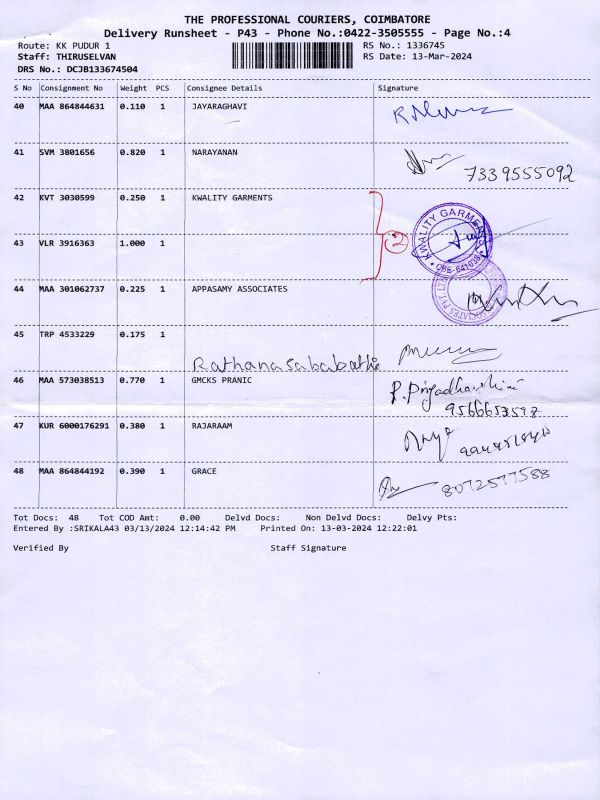 THE PROFESSIONAL COURIERS, COIMBATORE
Delivery Runsheet - P43 - Phone No.:0422-3505555 - Page No.:4
Route: KK PUDUR 1 RS No.: 1336745
Staff: THIRUSELVAN RS Date: 13-Mar-2024
DRS No.: DCJB133674504
S No Consignment No Weight PCS Consignee Details Signature
40 MAA 864844631 0.110 1 JAYARAGHAVI
41 SVM 3801656 0.820 1 NARAYANAN
7339555092
42 KVT 3030599 0.250 1 KWALITY GARMENTS
2
KWALITY GARMENTS
CBE-641038
43 VLR 3916363 1.000 1
44 MAA 301062737 0.225 1 APPASAMY ASSOCIATES
45 TRP 4533229 0.175 1
Rathanasababathi
46 MAA 573038513 0.770 1 GMCKS PRANIC P. Priyadharshini
9566653598
47 KUR 6000176291 0.380 1 RAJARAAM
48 MAA 864844192 0.390 1 GRACE 8072577588
Tot Docs: 48 Tot COD Amt: 0.00 Delvd Docs: Non Delvd Docs: Delvy Pts:
Entered By :SRIKALA43 03/13/2024 12:14:42 PM Printed On: 13-03-2024 12:22:01
Verified By Staff Signature